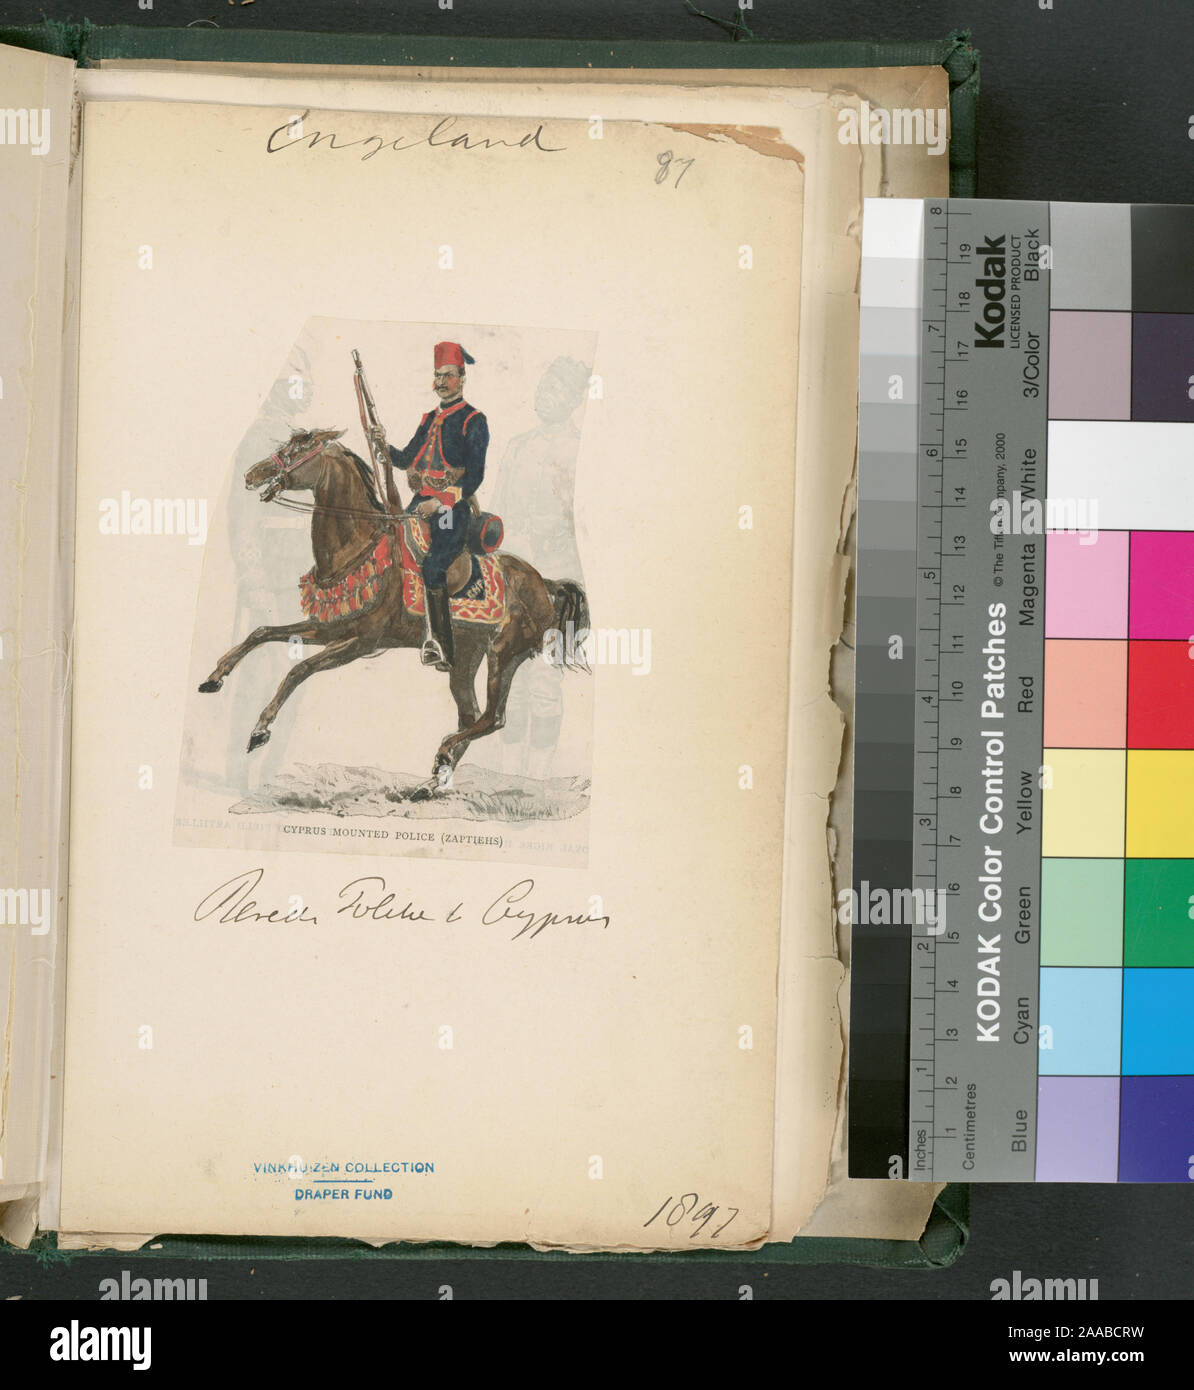 Engeland
87
CYPRUS MOUNTED POLICE (ZAPTIEHS)
Cyprus
VINKHUIZEN COLLECTION
DRAPER FUND
1897
Kodak
LICENSED PRODUCT
KODAK Color Control Patches
© The Tiffen Company, 2000
Inches
1
2
3
4
5
6
7
8
Centimetres
1
2
3
4
5
6
7
8
9
10
11
12
13
14
15
16
17
18
19
Blue
Cyan
Green
Yellow
Red
Magenta
White
3/Color
Black
alamy
alamy
Image ID: 2AABCRW
www.alamy.com